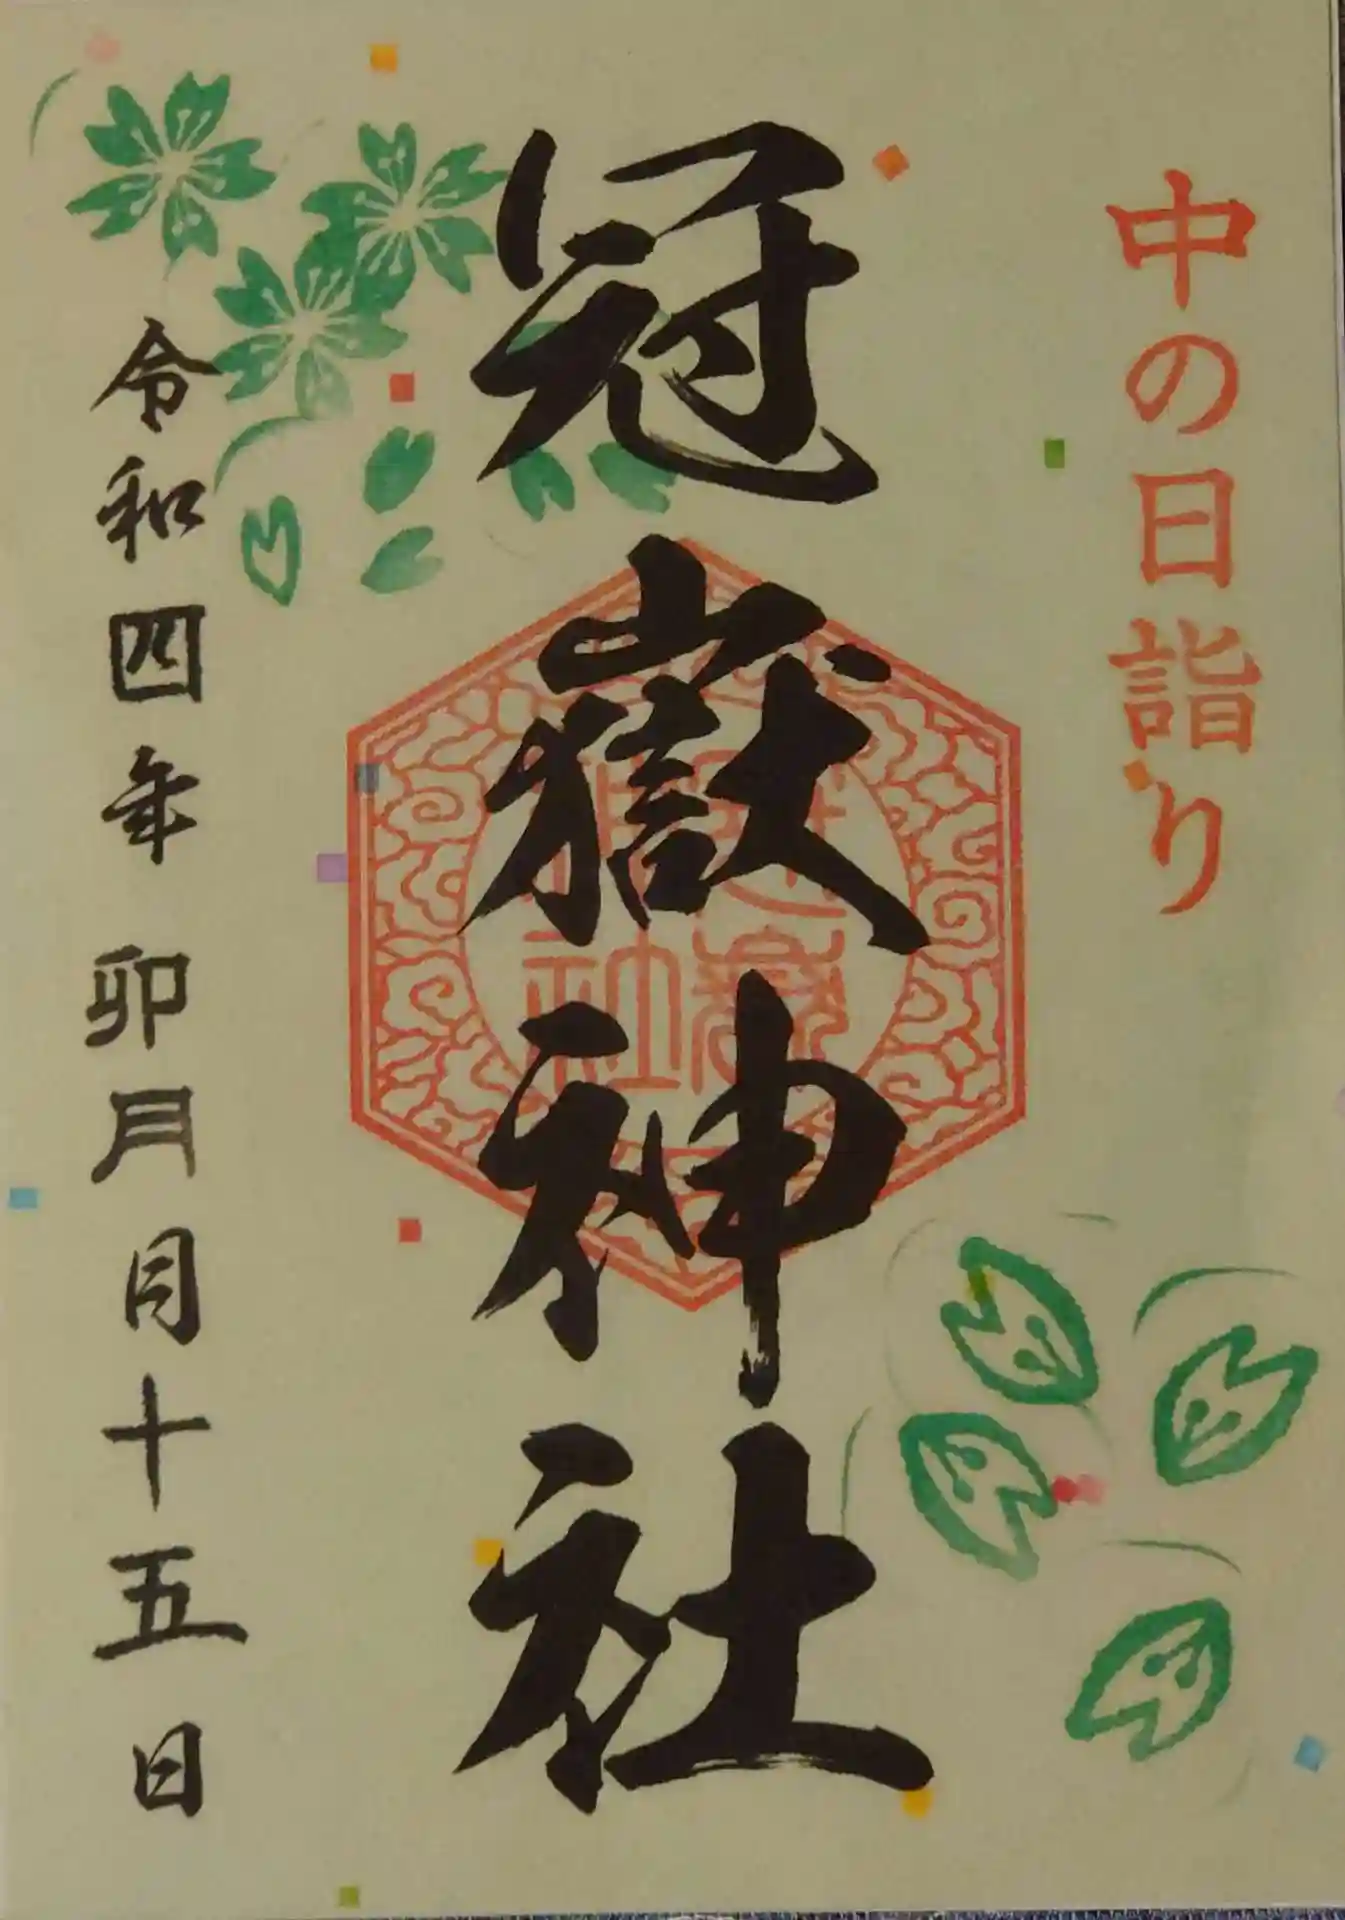 中の日詣り
冠嶽神社
令和四年卯月月十五日